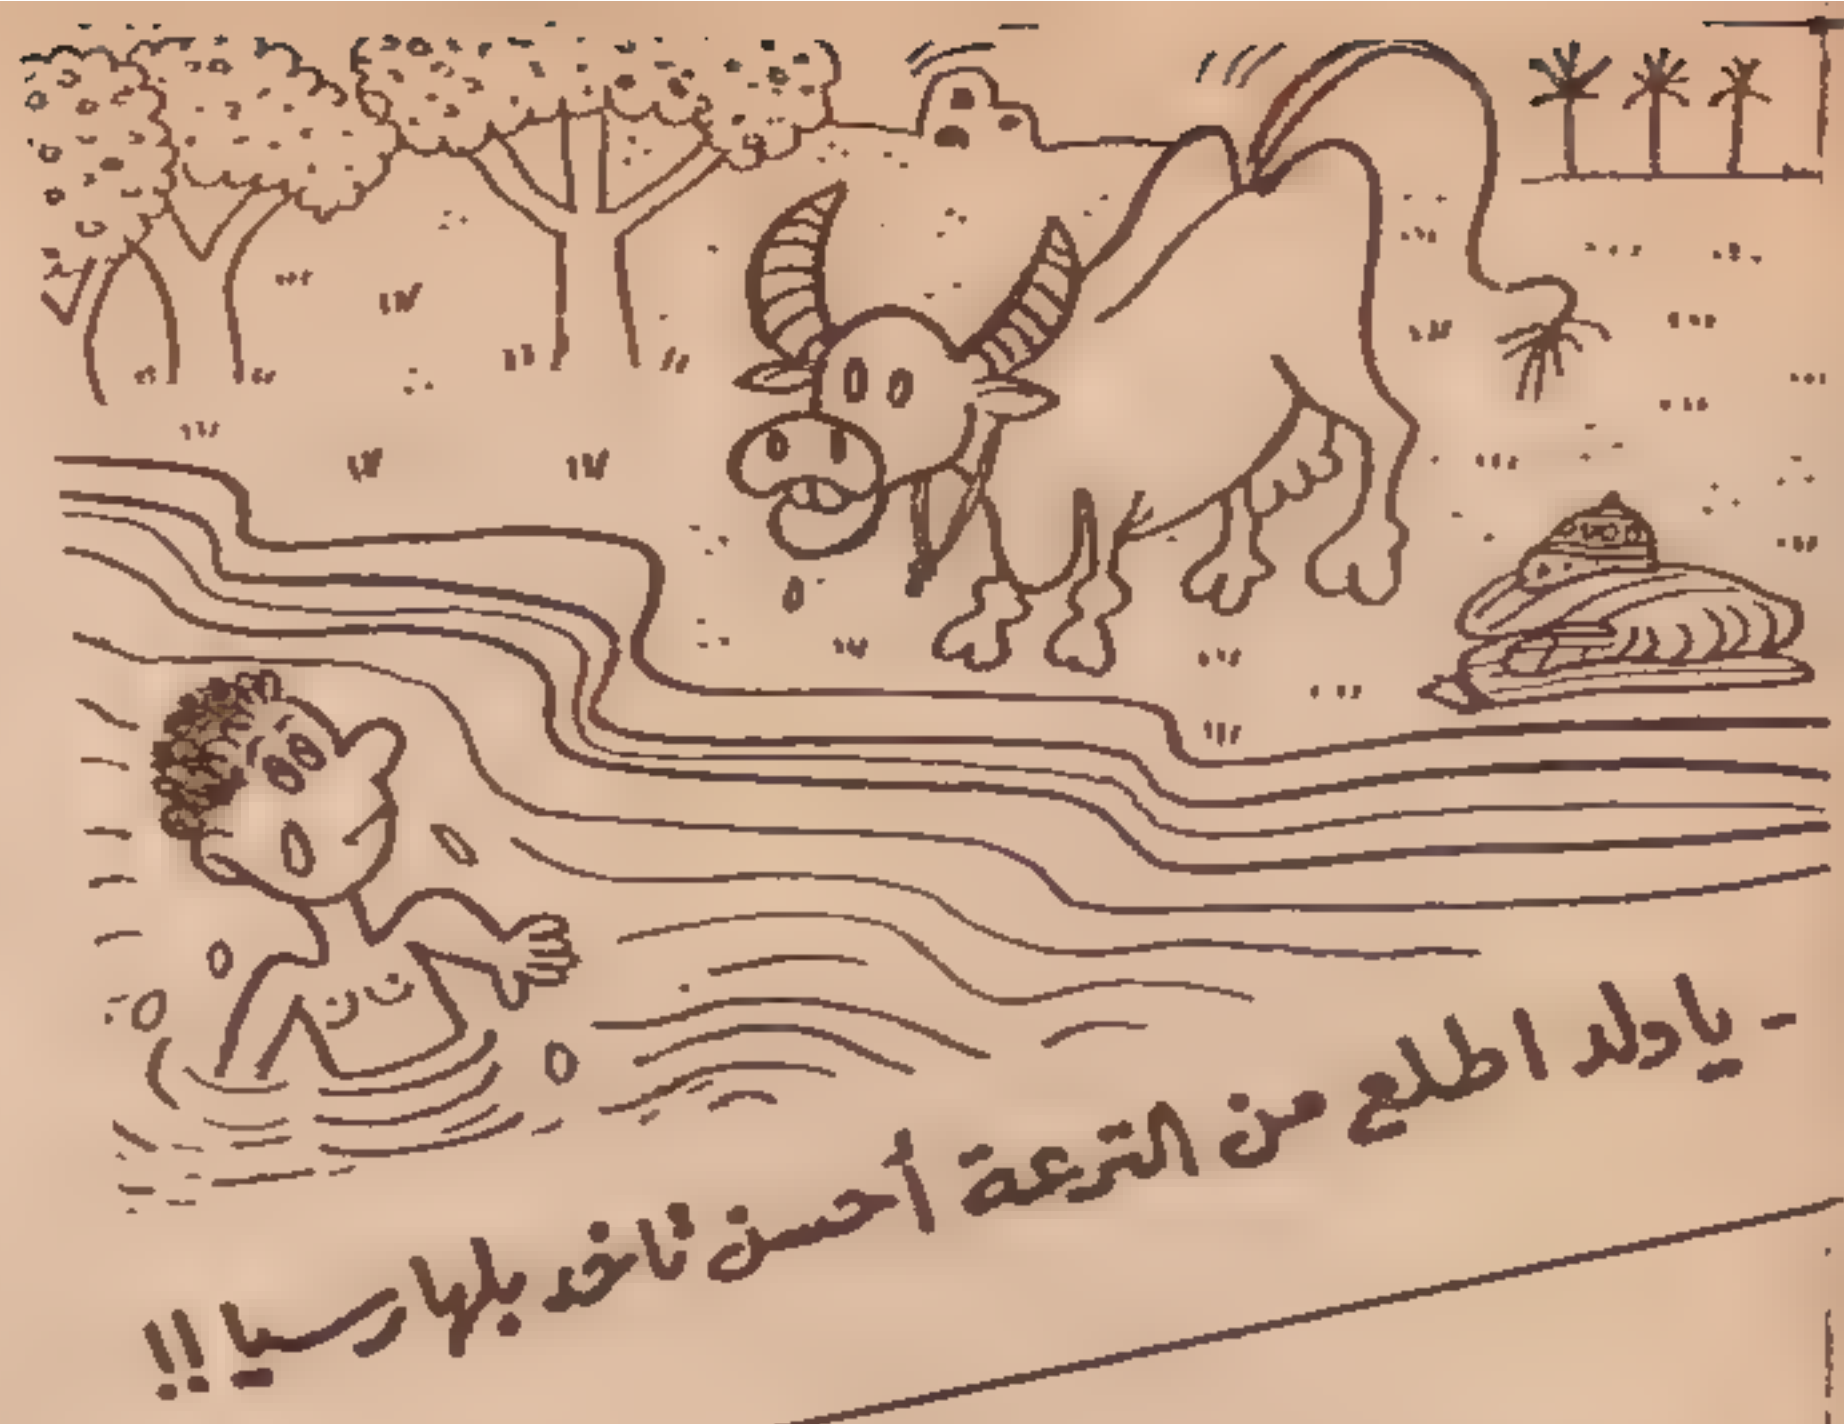 - ياولد اطلع من الترعة أحسن تاخد بلهارسيا!!